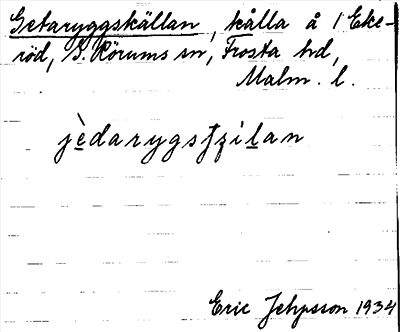 Getaryggskällan, källa å 1 Eke-
röd, S. Rörums sn, Frosta hd,
Malm. l.
jèdarygsʃzilan
Eric 1934